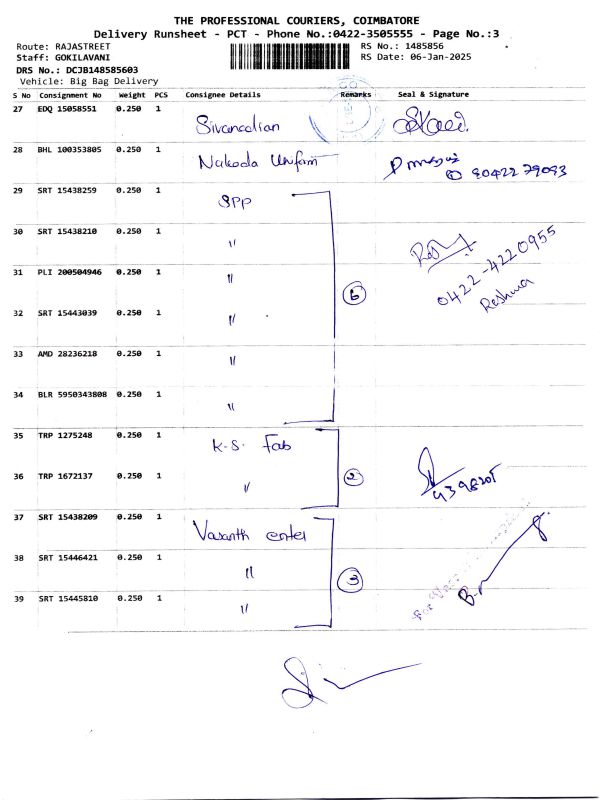 THE PROFESSIONAL COURIERS, COIMBATORE
Delivery Runsheet - PCT - Phone No.:0422-3505555 - Page No.:3
Route: RAJASTREET RS No.: 1485856
Staff: GOKILAVANI RS Date: 06-Jan-2025
DRS No.: DCJB148585603
Vehicle: Big Bag Delivery
S No Consignment No Weight PCS Consignee Details Remarks Seal & Signature
27 EDQ 15058551 0.250 1
28 BHL 100353805 0.250 1 Nakoda Uniform
90422 79093
29 SRT 15438259 0.250 1 SPP
30 SRT 15438210 0.250 1 "
0422-4220955
Reshma
31 PLI 200504946 0.250 1 " 6
32 SRT 15443039 0.250 1 "
33 AMD 28236218 0.250 1 "
34 BLR 5950343808 0.250 1 "
35 TRP 1275248 0.250 1 K.S. Fab
36 TRP 1672137 0.250 1 " 2
37 SRT 15438209 0.250 1 Vasanth center
38 SRT 15446421 0.250 1 " 3
39 SRT 15445810 0.250 1 "